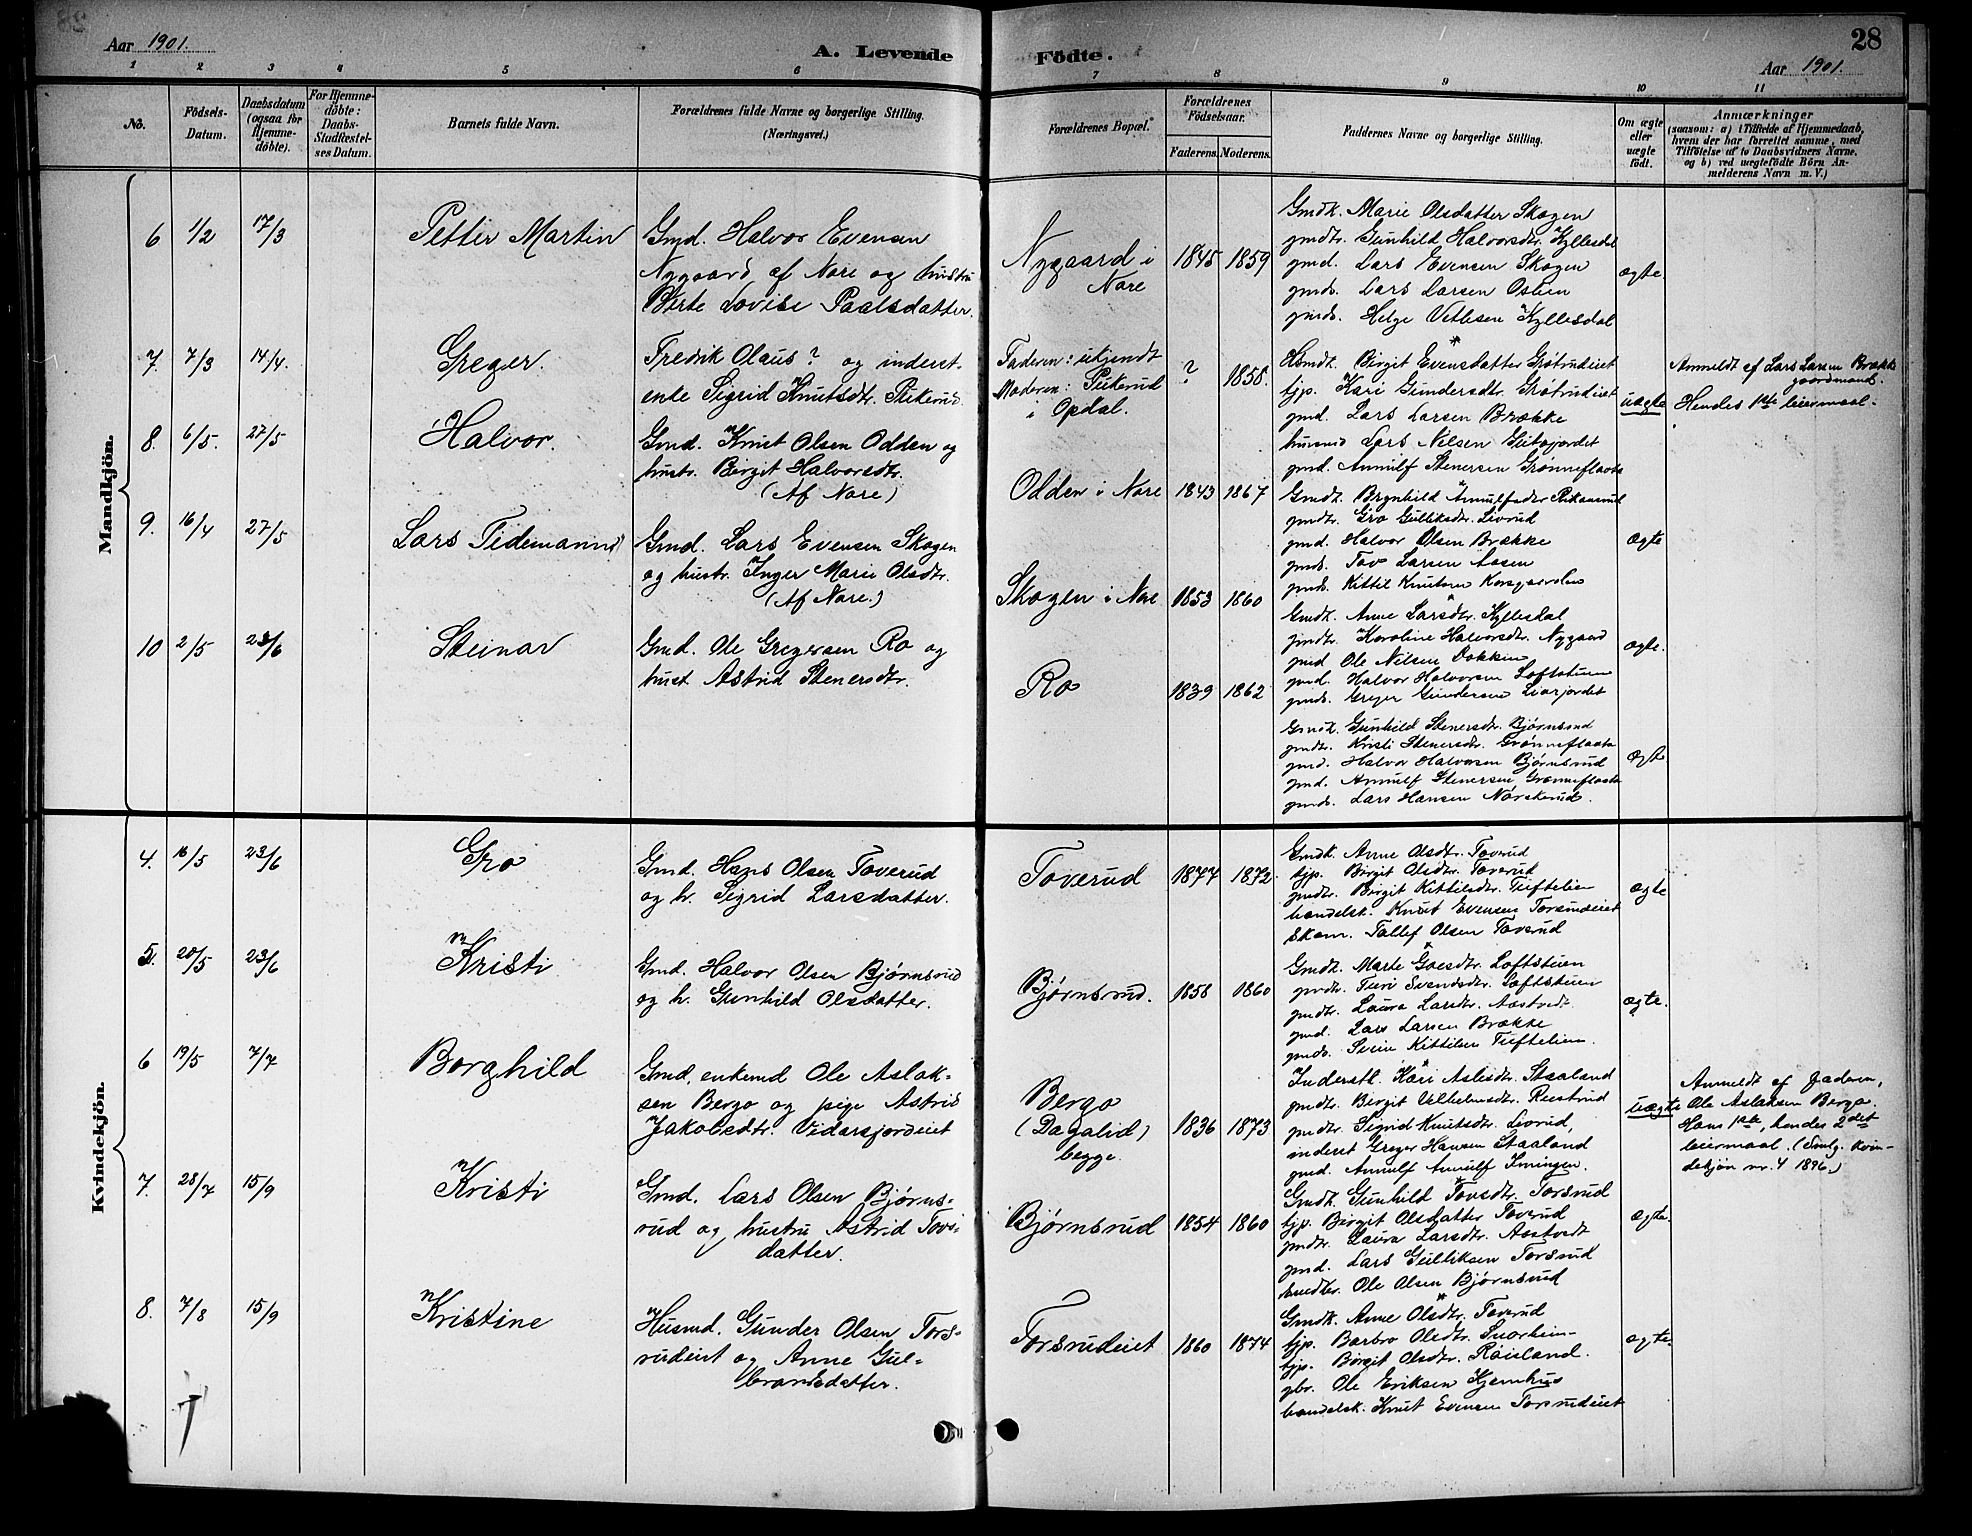 Aar 1901.
A. Levende Födte.
28
Aar 1901.
1 2 3 4 5 6 7 8 9 10 11
No.
Födsels-Datum.
Daabsdatum (ogsaa for Hjemme-döbte).
For Hjemme-döbte: Daabs-Stadfæstel-ses Datum.
Barnets fulde Navn.
Forældrenes fulde Navne og borgerlige Stilling. (Næringsvei.)
Forældrenes Bopæl.
Forældrenes Födselsaar.
Faderens. Moderens.
Faddernes Navne og borgerlige Stilling.
Om ægte eller uægte födt.
Anmærkninger
(saasom: a) i Tilfælde af Hjemmedaab,
hvem der har forrettet samme, med
Tilföielse af to Daabsvidners Navne,
og b) ved uegtefödte Börn An-
melderens Navn m. V.)
Mandkjön.
6 1/2 17/3 Petter Martin
Gmd. Halvor Evensen
Nygaard af Nore og hustru
Birte Lovise Paalsdatter.
Nygaard i
Nore
1845 1859
Gmdk. Marie Olsdatter Skogen
gmdtr. Gunhild Halvorsdtr. Kyllesdal
gmd. Lars Evensen Skogen
gmds. Lars Larsen Oslien
gmds. Helge Vetlesen Kyllesdal
ægte
7. 7/3 14/4. Greger.
Fredrik Olaus? og inderst-
enke Sigrid Knutsdtr. Pikerud
Faderen: ukjendt
Moderen: Pikerud
i Opdal.
? 1858.
Hsmdk. Birgit Evensdatter Grøtrudeiet
tjp. Kari Gundersdtr. Grøtrudeiet
gmd. Lars Larsen Brække
husmd Lars Nilsen
gmd. Annulf Stenersen Grønneflaata
uægte
Anmeldt af Lars Larsen Brække
gaardmand.
Hendes 1ste leiermaal.
8. 6/5. 27/5 Halvor.
Gmd. Knut Olsen Odden og
hustr. Birgit Halvorsdtr.
(Af Nore)
Odden i Nore 1843 1867
Gmdk. Brynhild Annulfsdtr
gmdtr. Gro Gulliksdtr. Livrud
gmd. Halvor Olsen Brække
gmds. Tov Larsen Aasen
gmds. Kittil Knutsen
ægte
9. 16/4 27/5 Lars Tidemann
Gmd. Lars Evensen Skogen
og hustr. Inger Marie Olsdtr.
(Af Nore.)
Skogen i Nore 1853 1860
Gmdk. Anne Larsdtr. Kyllesdal
gmdtr. Karoline Halvorsdtr. Nygaard
gmd Ole Nilsen Dokken
gmd. Halvor Halvorsen Loftstuen
gmds. Greger Gundersen Liarjordet
ægte.
10 2/5 23/6 Steinar
Gmd. Ole Gregersen Ro og
hust Astrid Stenersdtr.
Ro 1839 1862
Gmdk. Gunhild Stenersdtr. Bjørnsrud
gmdtr. Kristi Stenersdtr. Grønneflaata
gmd. Halvor Halvorsen Bjørnsrud
gmd. Annulf Stenersen Grønneflaata
gmds. Lars Hansen Nørsterud.
ægte
Kvindekjön.
4. 16/5 23/6 Gro
Gmd. Hans Olsen Toverud
og h. Sigrid Larsdatter.
Toverud 1877 1872.
Gmdk. Anne Olsdtr. Toverud
tjp. Birgit Olsdtr. Toverud
gmdtr. Birgit Kittilsdtr. Tuftelien
handelsk. Knut Evensen Torsrudeiet
Skom. Tollef Olsen Toverud
ægte
5. 20/5 23/6 Kristi
Gmd. Halvor Olsen Bjørnsrud
og h. Gunhild Olsdatter.
Bjørnsrud. 1858 1860
Gmdk. Marte Goesdtr. Loftstuen
gmdtr. Turi Svendsdtr. Loftstuen
gmdtr. Laura Larsdtr. Aastvedt
gmd. Lars Larsen Brække
gmds. Svein Kittilsen Tuftelien.
ægte.
6 19/5 7/7 Borghild
Gmd, enkemd Ole Aslak-
sen Bergo og pige Astrid
Jakobsdtr. Vidarsjordeiet
Bergo
(Dagalid)
begge.
1836 1873
Inderstk. Kari Aslesdtr. Staaland
gmdtr. Bergit Vilhelmsdtr. Rustrud
gmdtr. Sigrid Knutsdtr. Livrud,
inderst Greger Hansen Staaland
gmd. Annulf Annulfs Imingen.
uægte
Anmeldt af Faderen,
Ole Aslaksen Bergo.
Hans 1ste, hendes 2det
leiermaal. (Smlg. Kvin-
dekjøn nr. 4 1896.)
7. 28/7 15/9 Kristi
Gmd. Lars Olsen Bjørns-
rud og hustru Astrid Tovs-
datter.
Bjørnsrud 1854 1860
Gmdk. Gunhild Tovsdtr. Torsrud
tjp. Birgit Olsdatter Toverud
gmdtr. Laura Larsdtr. Aastvedt
gmd. Lars Gulliksen Torsrud
Ole Olsen Bjørnsrud
ægte.
8. 7/8 15/9 Kristine
Husmd. Gunder Olsen Tors-
rudeiet og Anne Gul-
brandsdatter.
Torsrudeiet 1860 1874
Gmdk. Anne Olsdtr. Toverud
tjp. Barbro Olsdtr. Snorheim
tjp. Børgit Olsdtr. Røisland.
gbr. Ole Eriksen Hjemhus
handelsk. Knut Evensen Torsrudeiet
ægte.